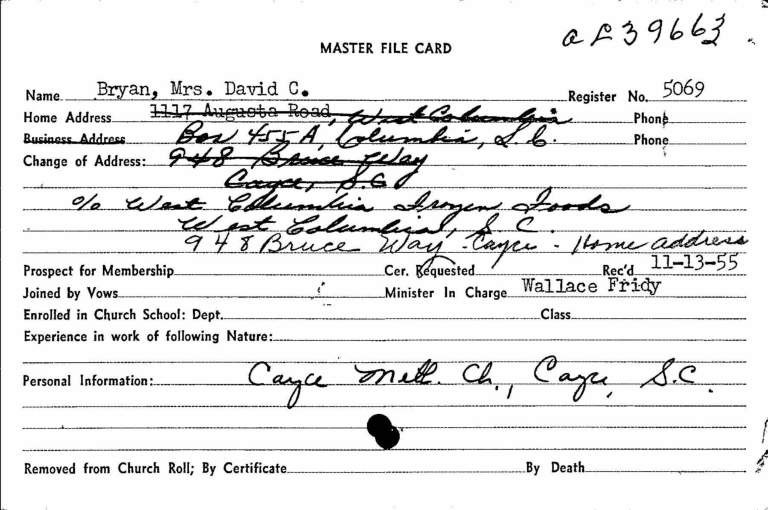 AL39663
MASTER FILE CARD
Name Bryan, Mrs. David C. Register No. 5069
Home Address 1117 Augusta Road, West Columbia Phone
Business Address Box 455A, Columbia, S.C. Phone
Change of Address: 948 Bruce Way
Cayce, S.C.
% West Columbia Frozen Foods
West Columbia, S.C.
948 Bruce Way - Cayce - Home address
Prospect for Membership Cer. Requested Rec'd 11-13-55
Joined by Vows Minister In Charge Wallace Fridy
Enrolled in Church School: Dept. Class
Experience in work of following Nature:
Personal Information: Cayce Meth. Ch., Cayce, S.C.
Removed from Church Roll; By Certificate By Death